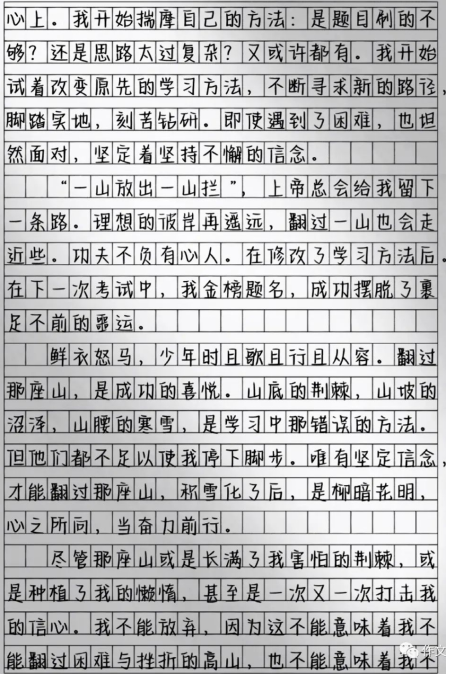 心上。我开始揣摩自己的方法：是题目刷的不
够？还是思路太过复杂？又或许都有。我开始
试着改变原先的学习方法，不断寻求新的路径，
脚踏实地，刻苦钻研。即使遇到了困难，也坦
然面对，坚定着坚持不懈的信念。
“一山放出一山拦”，上帝总会给我留下
一条路。理想的彼岸再遥远，翻过一山也会走
近些。功夫不负有心人。在修改了学习方法后。
在下一次考试中，我金榜题名，成功摆脱了裹
足不前的噩运。
鲜衣怒马，少年时且歌且行且从容。翻过
那座山，是成功的喜悦。山底的荆棘，山坡的
沼泽，山腰的寒雪，是学习中那错误的方法。
但他们都不足以使我停下脚步。唯有坚定信念，
才能翻过那座山，积雪化了后，是柳暗花明，
心之所向，当奋力前行。
尽管那座山或是长满了我害怕的荆棘，或
是种植了我的懒惰，甚至是一次又一次打击我
的信心。我不能放弃，因为这不能意味着我不
能翻过困难与挫折的高山，也不能意味着我不
作文